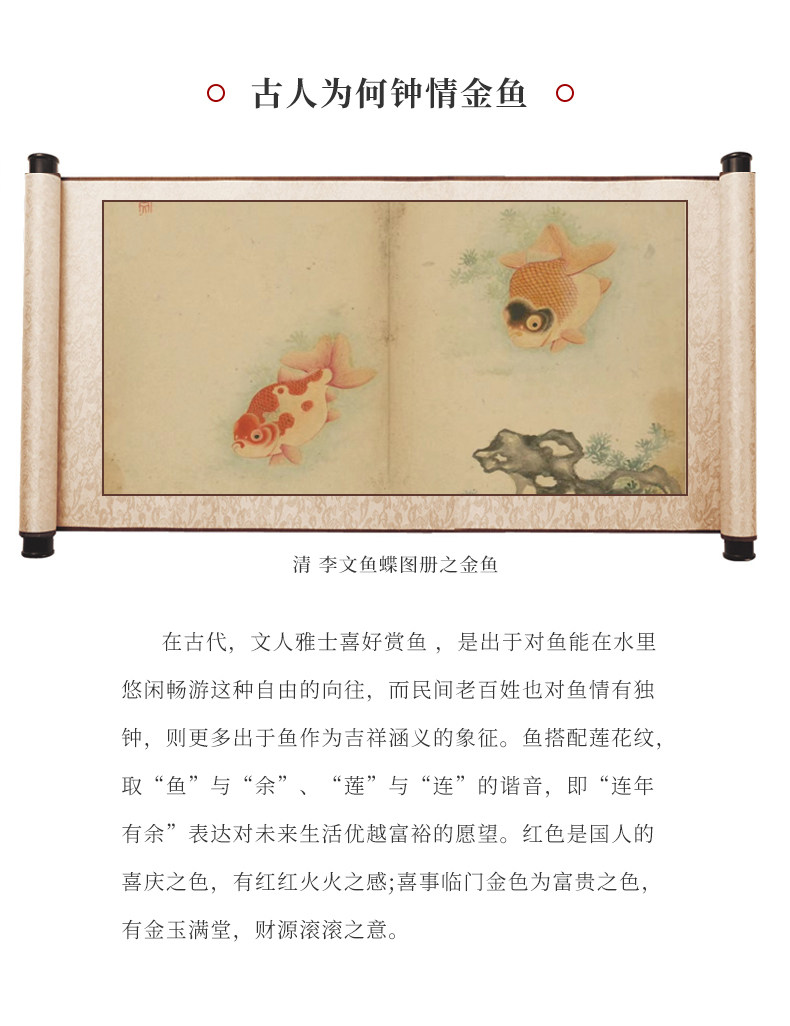 古人为何钟情金鱼
清 李文鱼蝶图册之金鱼
在古代，文人雅士喜好赏鱼 ，是出于对鱼能在水里
悠闲畅游这种自由的向往，而民间老百姓也对鱼情有独
钟，则更多出于鱼作为吉祥涵义的象征。鱼搭配莲花纹，
取“鱼”与“余”、“莲”与“连”的谐音，即“连年
有余”表达对未来生活优越富裕的愿望。红色是国人的
喜庆之色，有红红火火之感;喜事临门金色为富贵之色，
有金玉满堂，财源滚滚之意。